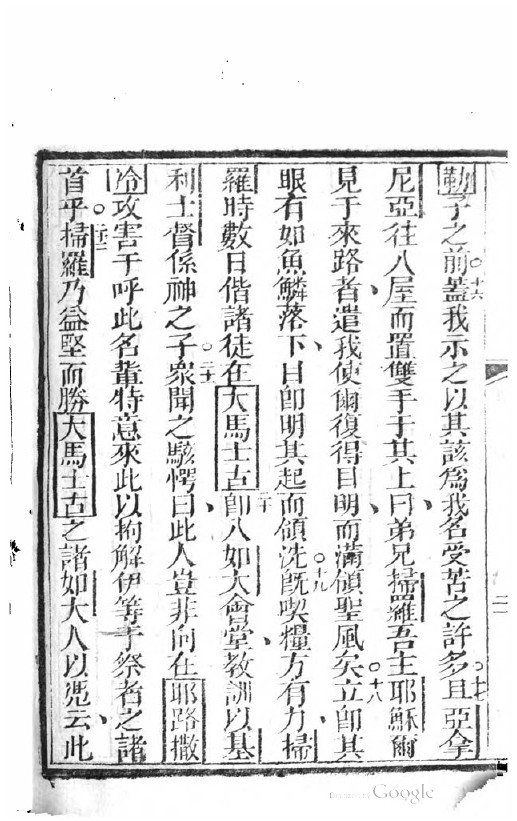 勒子之前○十六蓋我示之以其該爲我名受苦之許多○十七且亞拿
尼亞往入屋而置雙手于其上曰弟兄掃羅吾主耶穌爾
見于來路者遣我使爾復得目明而滿領聖風矣○十八立卽其
眼有如魚鱗落下目卽明其起而領洗○十九旣喫糧方有力掃
羅時數日偕諸徒在大馬士古二十卽入如大會堂教訓以基
利士督係神之子○二十一衆聞之駭愕曰此人豈非向在耶路撒
冷攻害于呼此名輩特意來此以拘解伊等于祭者之諸
首乎○二十二掃羅乃益堅而勝大馬士古之諸如大人以憑云此
Digitized by Google